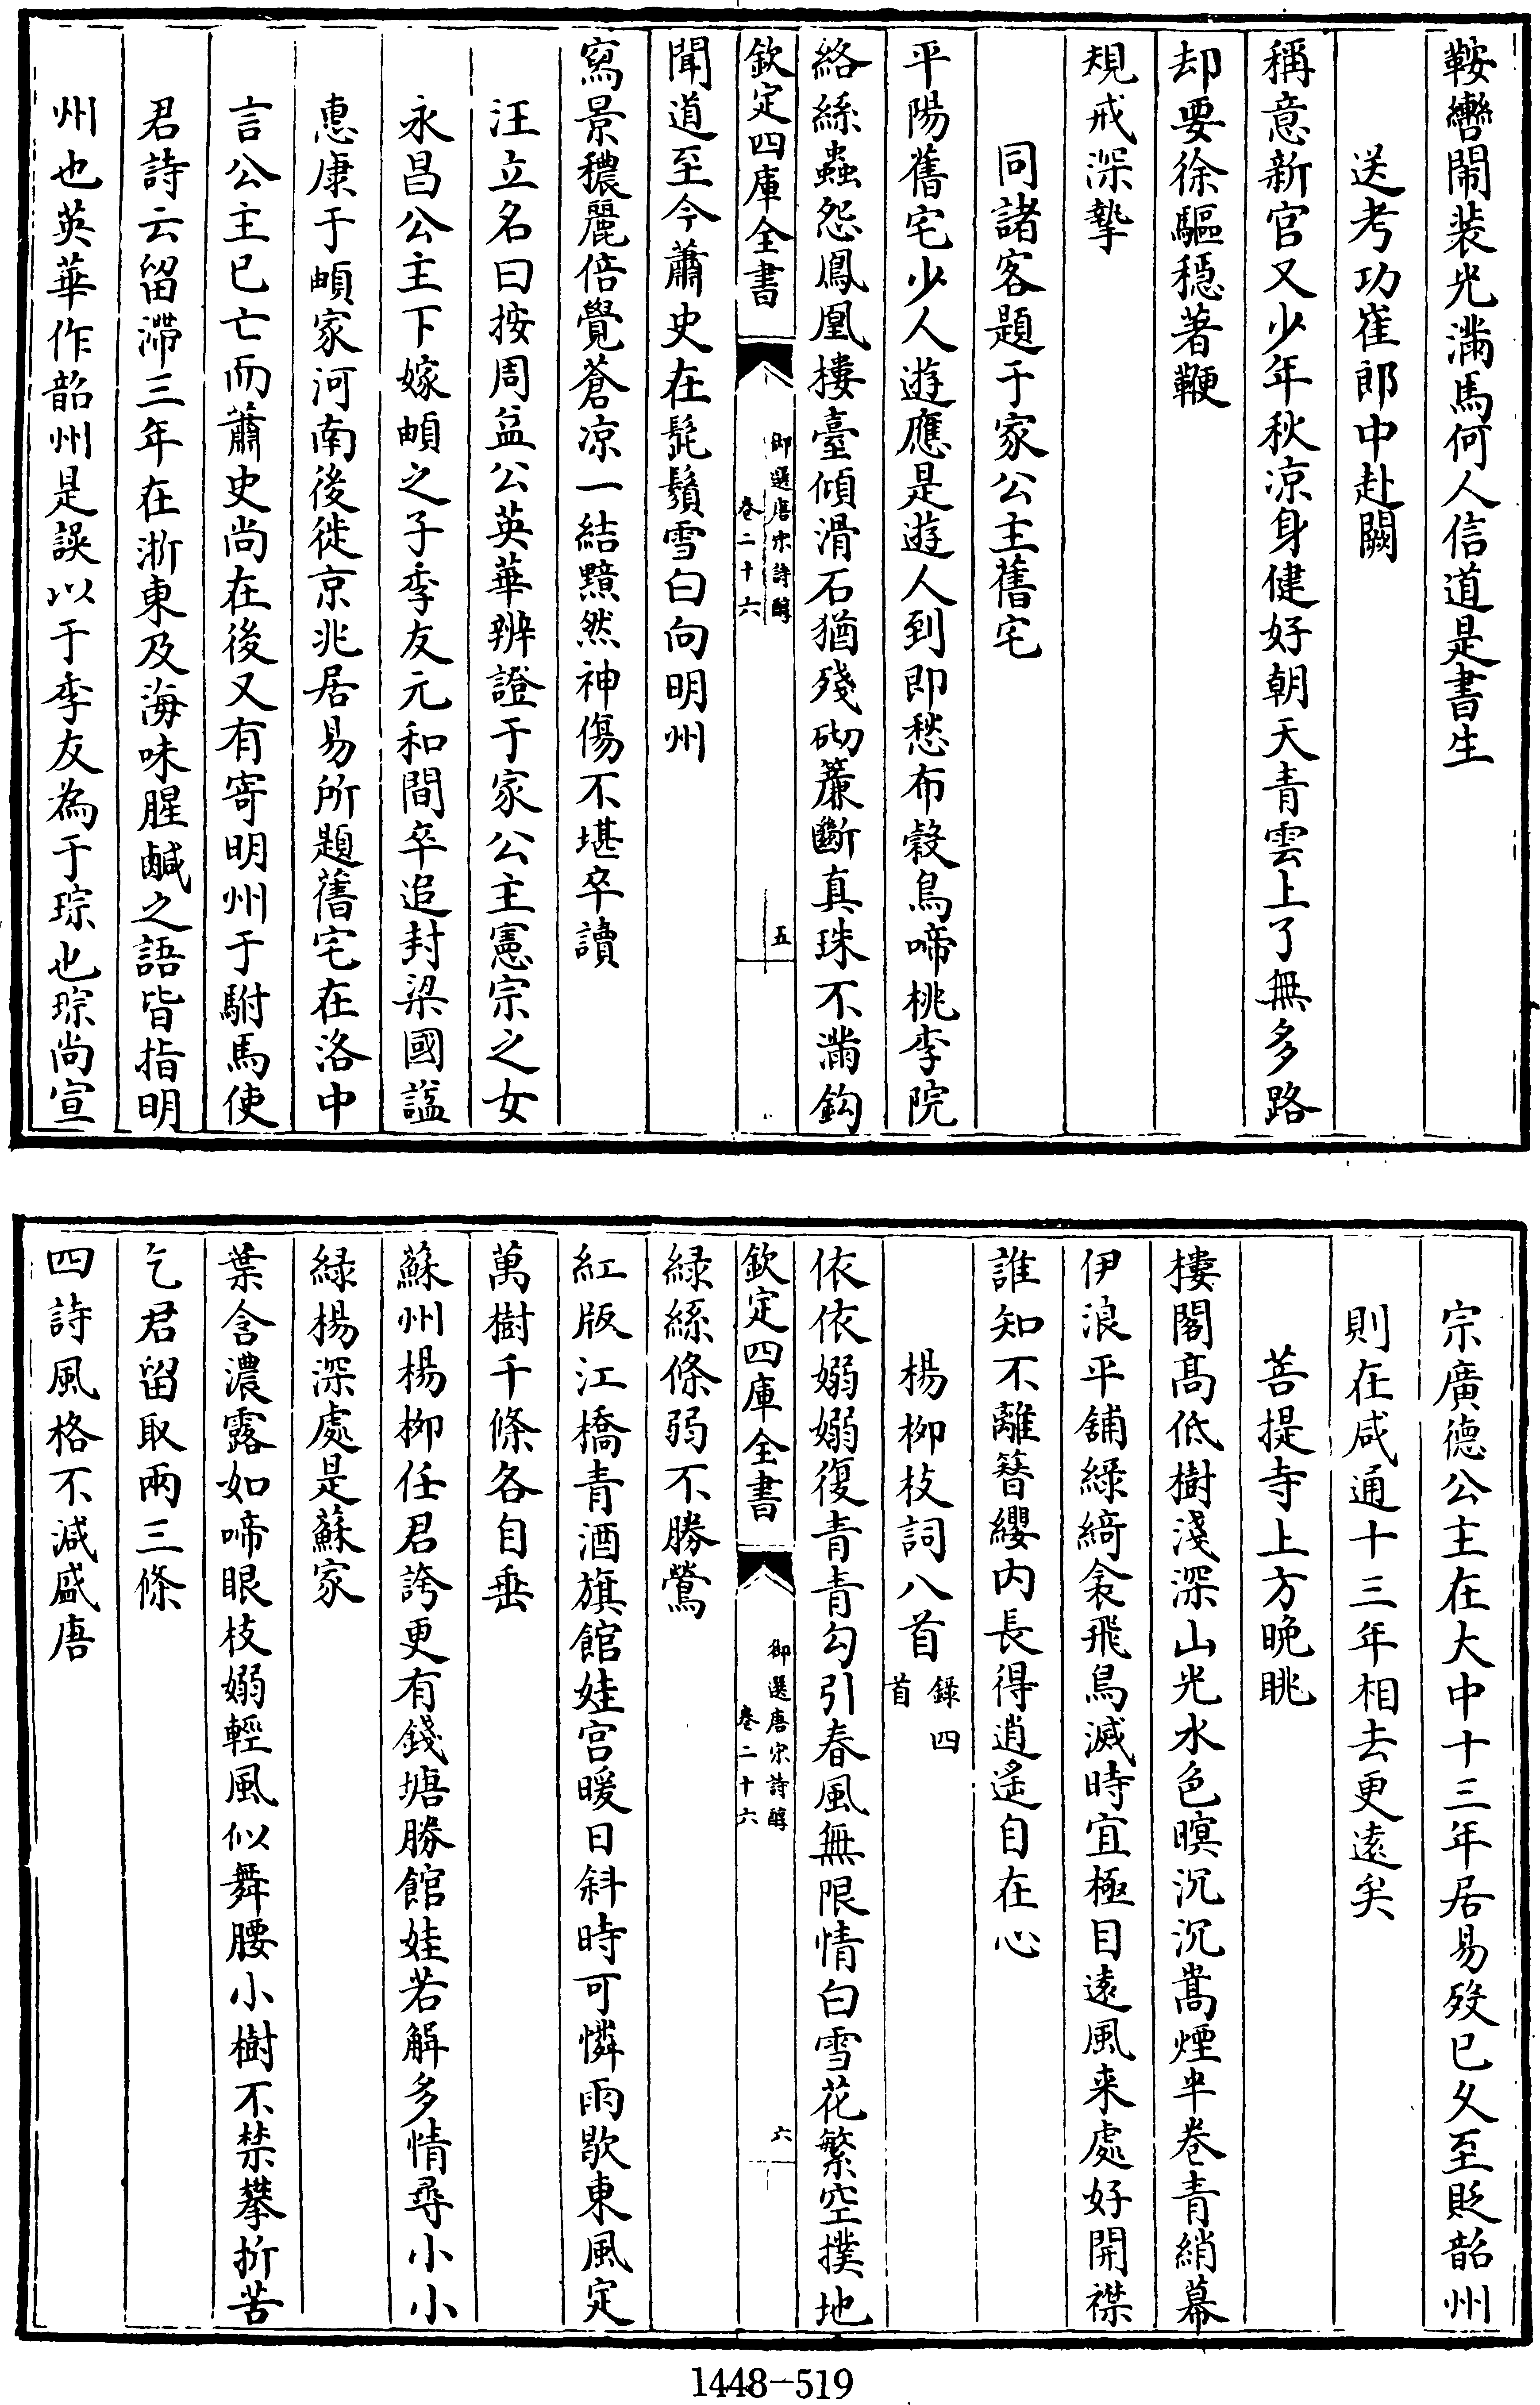 鞍轡閙装光滿馬何人信道是書生
送考功崔郎中赴闕
稱意新官又少年秋凉身健好朝天青雲上了無多路
却要徐驅穩著鞭
規戒深摯
同諸客題于家公主舊宅
平陽舊宅少人遊應是遊人到即愁布穀鳥啼桃李院
絡絲蟲怨鳳凰樓臺傾滑石猶殘砌簾斷真珠不滿鈎
欽定四庫全書
御選唐宋詩醇
卷二十六
五
聞道至今蕭史在髭鬚雪白向明州
寫景穠麗倍覺蒼凉一結黯然神傷不堪卒讀
汪立名曰按周益公英華辨證于家公主憲宗之女
永昌公主下嫁頔之子季友元和間卒追封梁國諡
惠康于頔家河南後徙京兆居易所題舊宅在洛中
言公主已亡而蕭史尚在後又有寄明州于駙馬使
君詩云留滯三年在浙東及海味腥鹹之語皆指明
州也英華作韶州是誤以于季友為于琮也琮尚宣
宗廣德公主在大中十三年居易殁已久至貶韶州
則在咸通十三年相去更逺矣
菩提寺上方晚眺
樓閣髙低樹淺深山光水色暝沉沉嵩煙半卷青綃幕
伊浪平鋪緑綺衾飛鳥滅時宜極目逺風来處好開襟
誰知不離簪纓内長得逍遙自在心
楊柳枝詞八首錄四首
依依嫋嫋復青青勾引春風無限情白雪花繁空撲地
欽定四庫全書
御選唐宋詩醇
卷二十六
六
緑絲條弱不勝鶯
紅版江橋青酒旗館娃宫暖日斜時可憐雨歇東風定
萬樹千條各自垂
蘇州楊柳任君誇更有錢塘勝館娃若解多情尋小小
緑楊深處是蘇家
葉含濃露如啼眼枝嫋輕風似舞腰小樹不禁攀折苦
乞君留取兩三條
四詩風格不減盛唐
1448-519